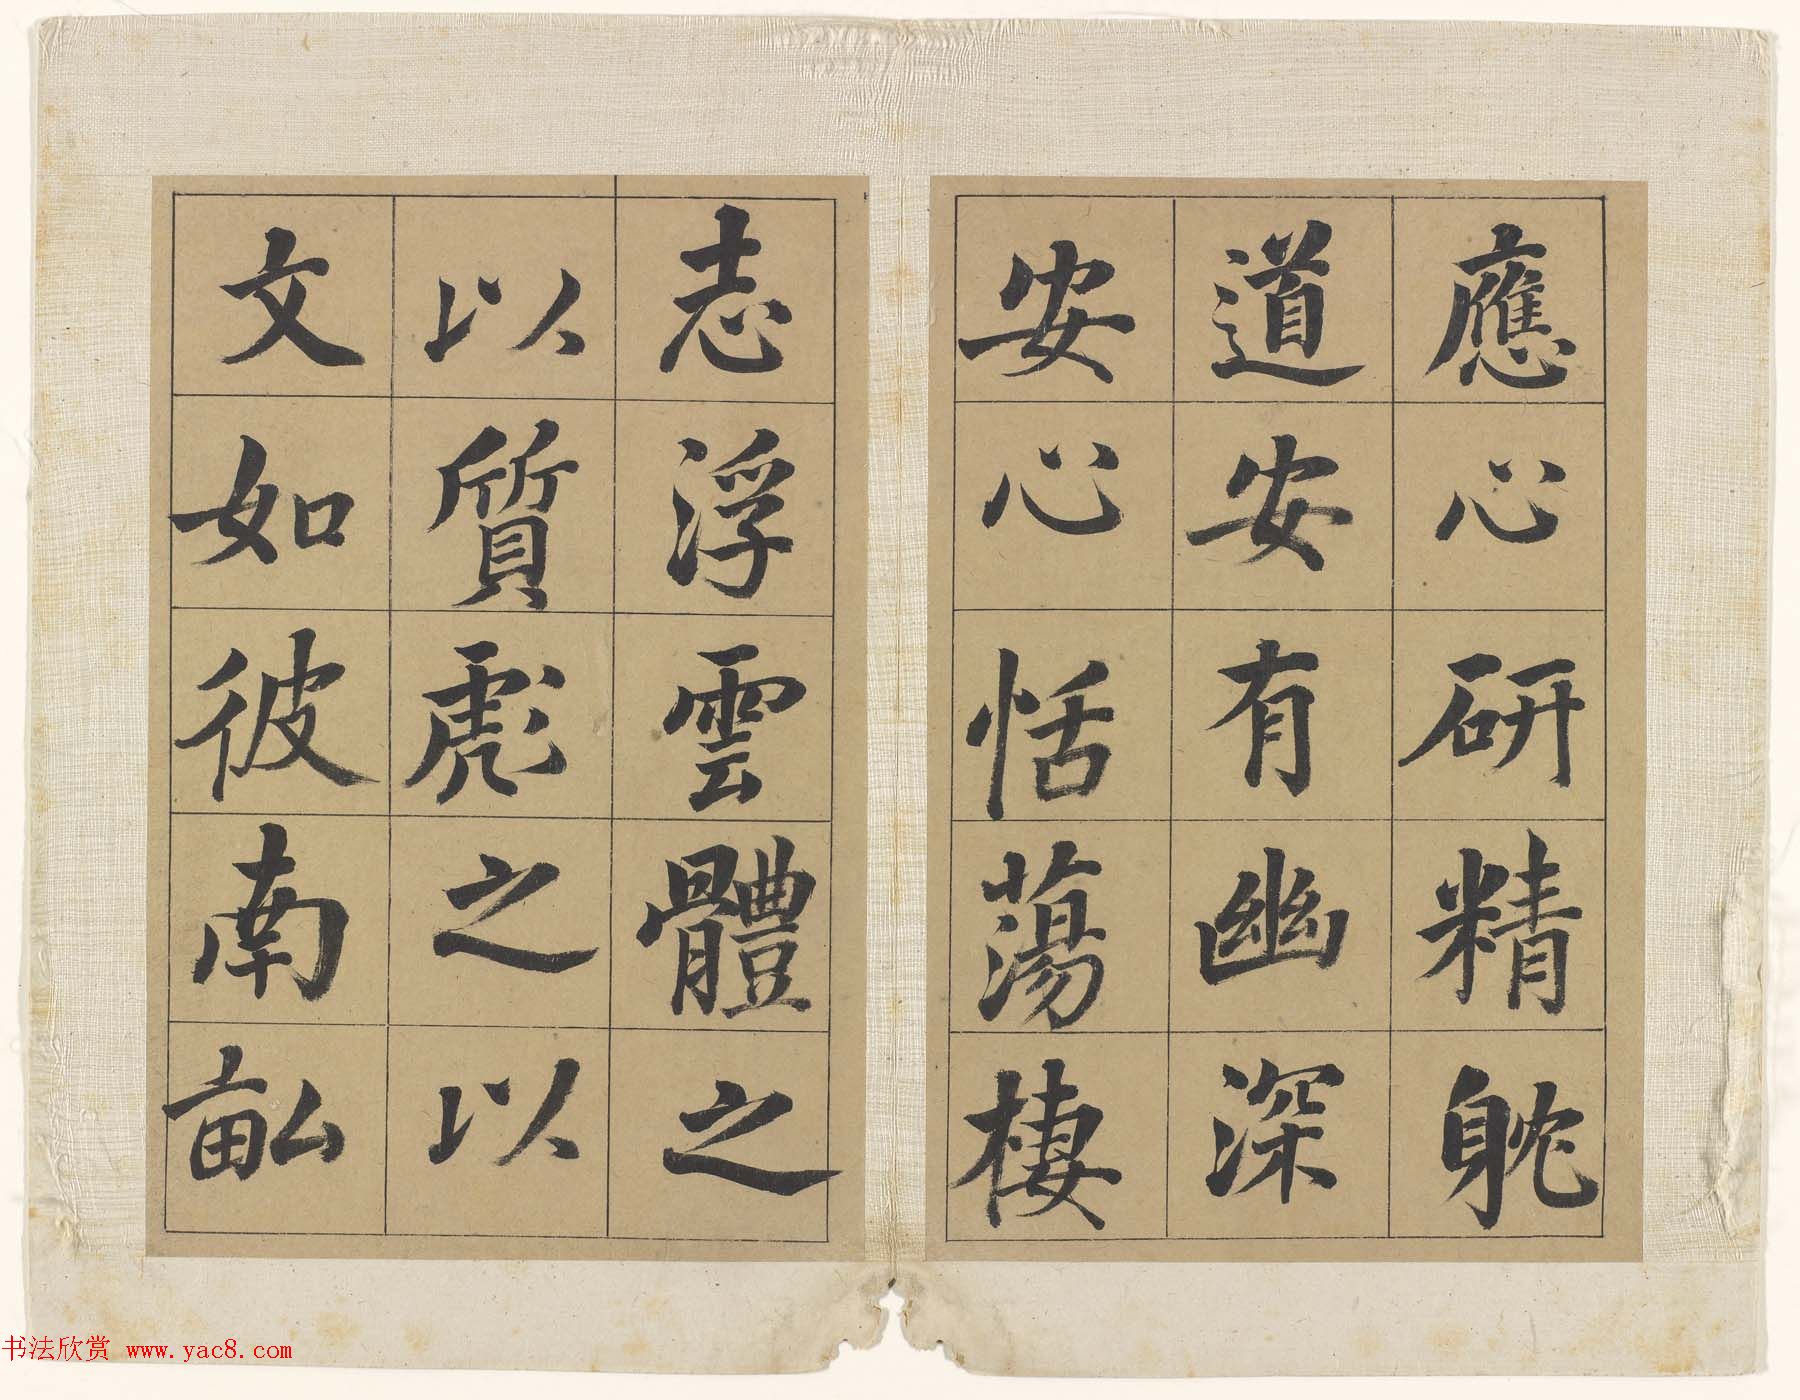 應心研精躭
道安安有幽深
安心恬蕩棲
志浮雲體之
以質彪之以
文如彼南畝
书法欣赏 www.yac8.com